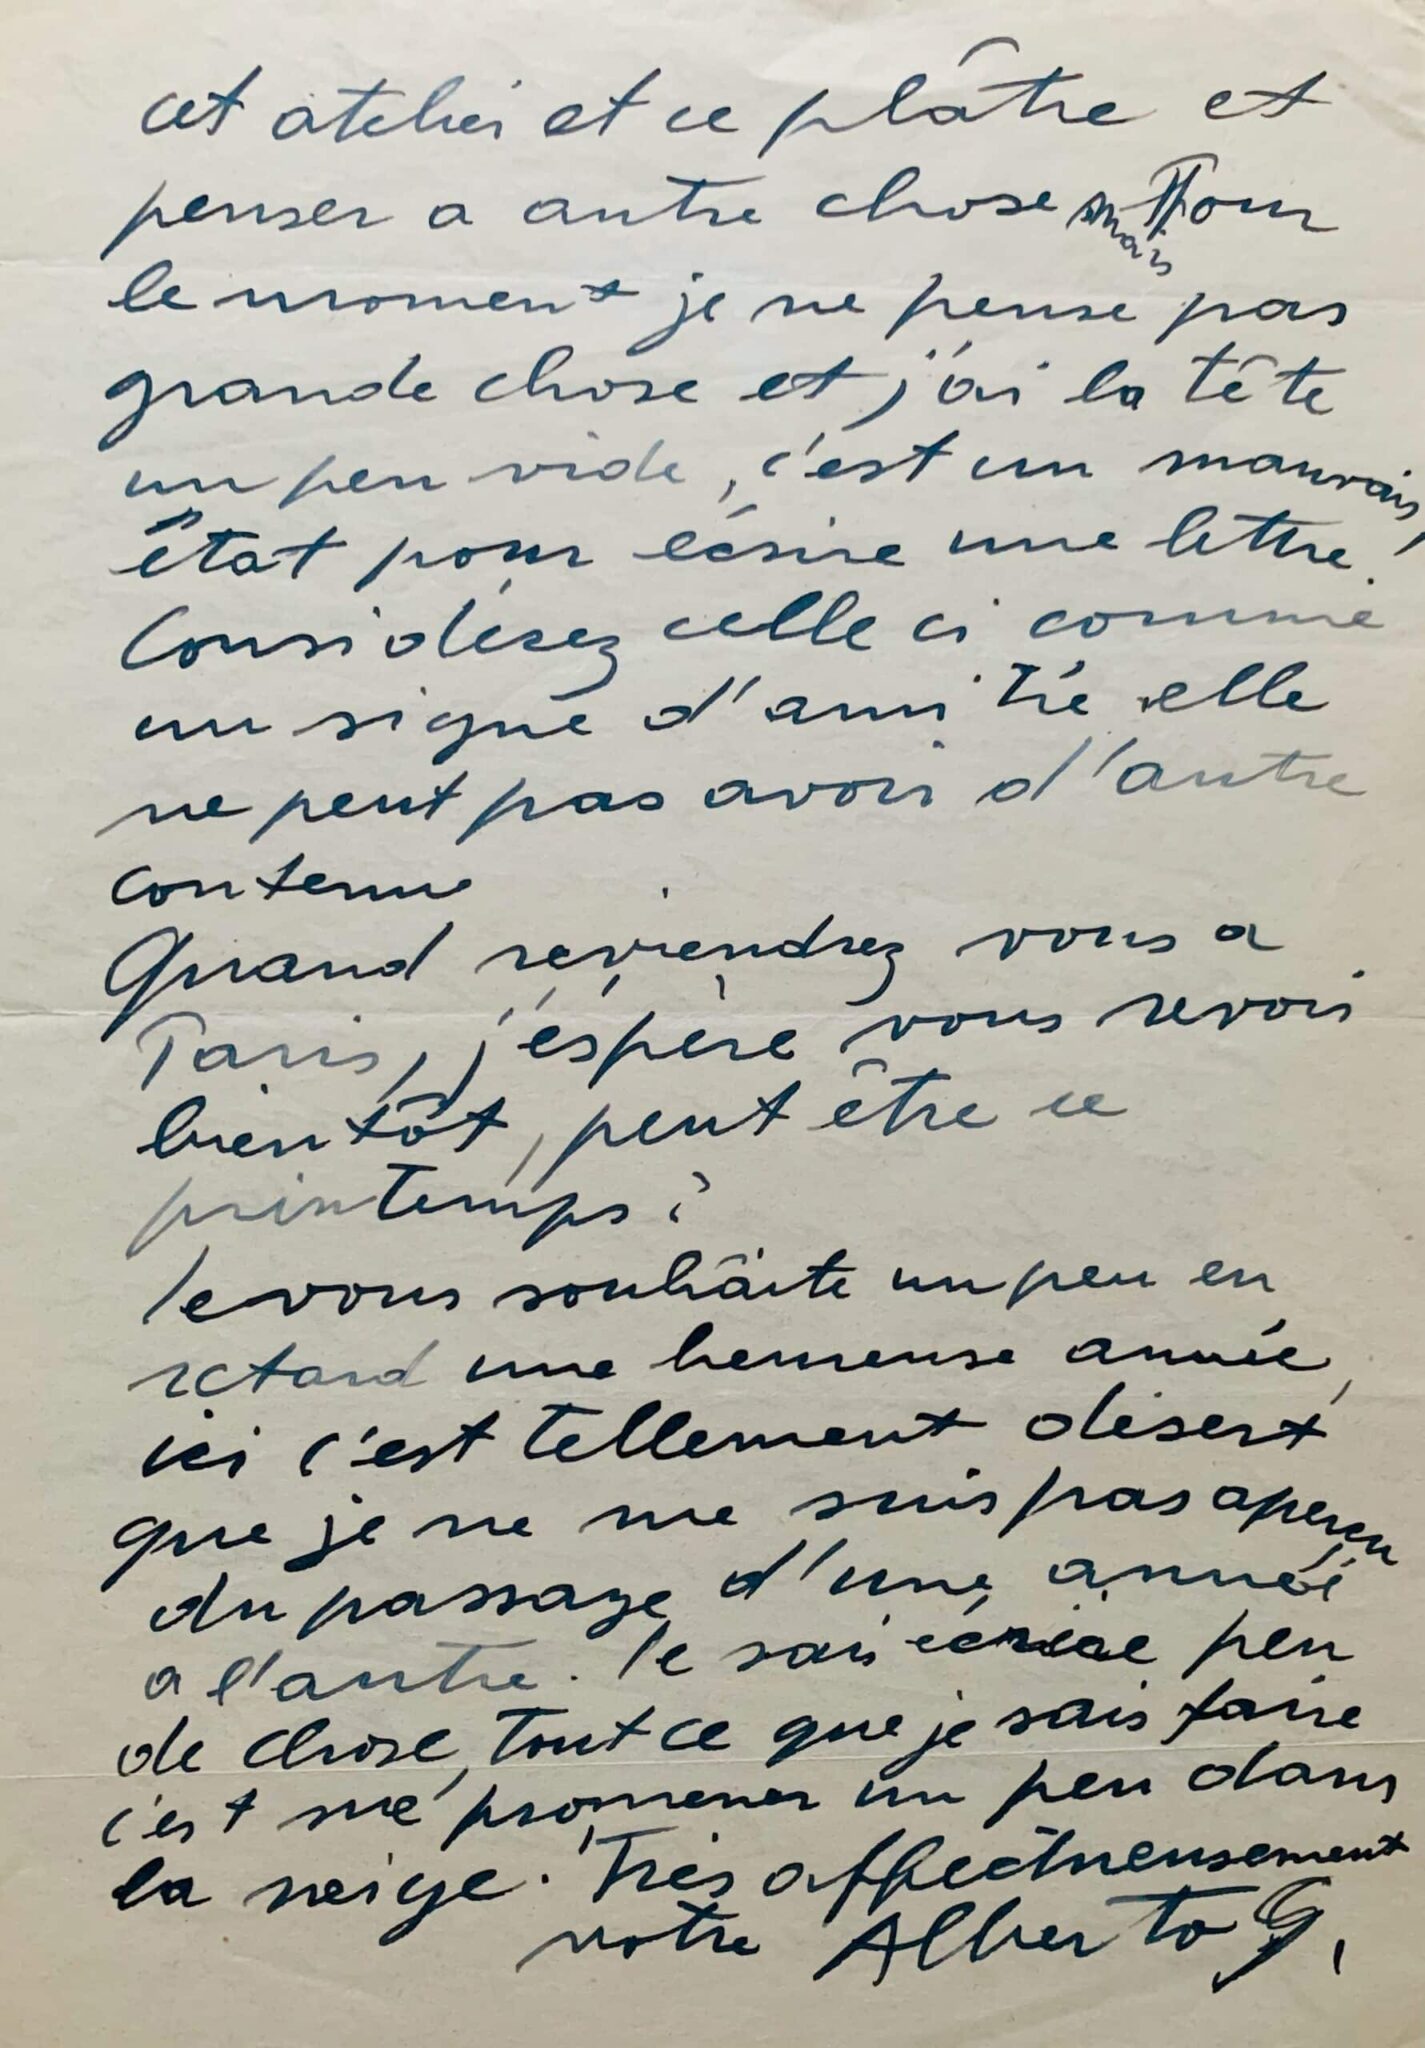 cet atelier et ce plâtre et
penser a autre chose mais Pour
le moment je ne pense pas
grande chose et j'ai la tête
un peu vide, c'est un mauvais,
état pour écrire une lettre.
Considérez celle ci comme
un signe d'amitié elle
ne peut pas avoir d'autre
contenue
Quand reviendrez vous a
Paris, j'éspère vous revoir
bientôt, peut être ce
printemps?
Je vous souhaite un peu en
retard une heureuse année,
ici c'est tellement désert
que je ne me suis pas aperçu
du passage d'une année
a l'autre. Je sais écrire peu
de chose, tout ce que je sais faire
c'est me promener un peu dans
la neige. Très affectueusement
votre Alberto G.